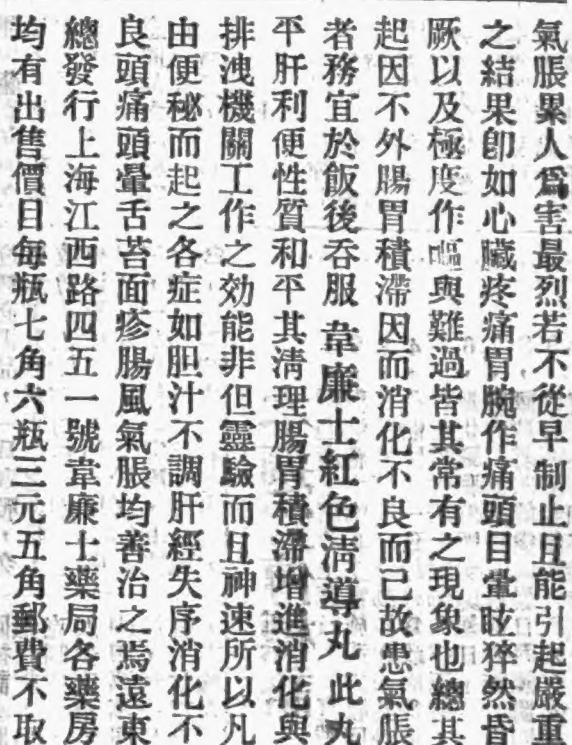 氣脹累人爲害最烈若不從早制止且能引起嚴重
之結果卽如心臟疼痛胃腕作痛頭目暈眩猝然昏
厥以及極度作嘔與難過皆其常有之現象也總其
起因不外腸胃積滯因而消化不良而已故患氣脹
者務宜於飯後吞服 韋廉士紅色淸導丸 此丸
平肝利便性質和平其淸理腸胃積滯增進消化與
排洩機關工作之効能非但靈驗而且神速所以凡
由便秘而起之各症如胆汁不調肝經失序消化不
良頭痛頭暈舌苔面疹腸風氣脹均善治之焉遠東
總發行上海江西路四五一號韋廉士藥局各藥房
均有出售價目每瓶七角六瓶三元五角郵費不取